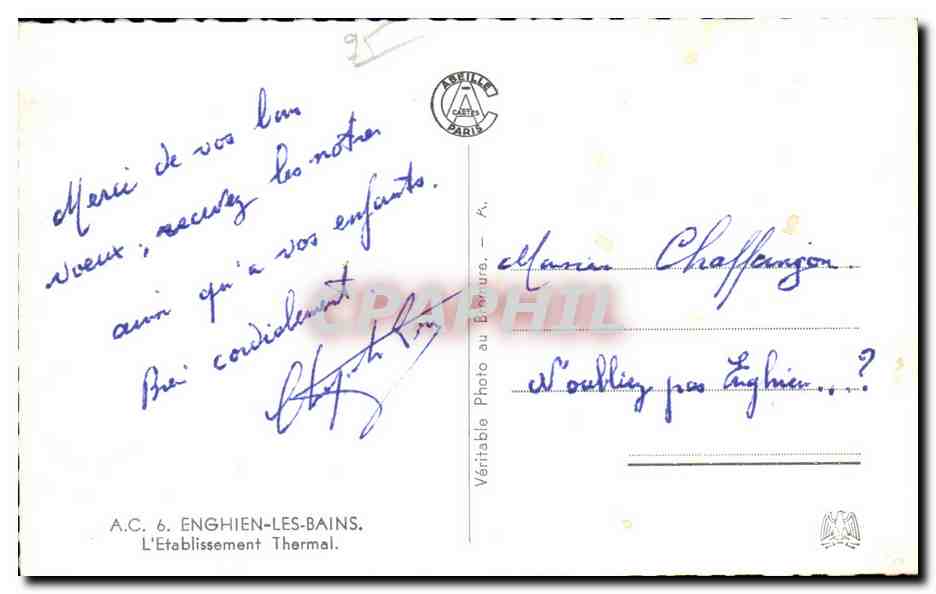 25
ABEILLE
CARTES
PARIS
Merci de vos bons
voeux, recevez les notres
ainsi qu'a vos enfants.
Bien cordialement.
Véritable Photo au Bromure. - R.
CPAPHIL
Monsieur Chaffangon.
N'oubliez pas Enghien....?
A.C. 6. ENGHIEN-LES-BAINS.
L'Etablissement Thermal.